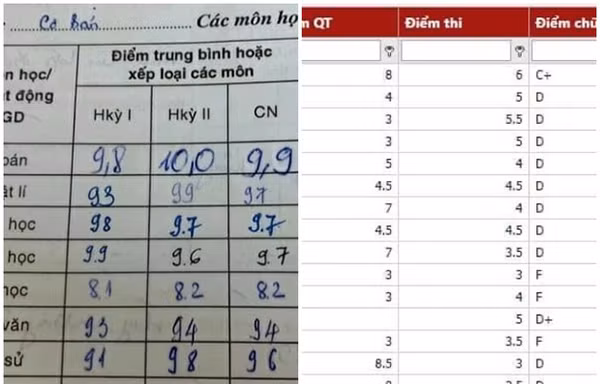 Cơ bản Các môn họ
n học/ Điểm trung bình hoặc
ạt động xếp loại các môn
GD Hkỳ I Hkỳ II CN
oán 9,8 10,0 9,9
ật lí 93 99 97
học 98 9.7 9.7
học 9.9 9.6 9.7
học 8.1 8.2 8.2
văn 93 94 94
sử 91 98 96
m QT Điểm thi Điểm chữ
8 6 C+
4 5 D
3 5.5 D
3 5 D
5 4 D
4.5 4.5 D
7 4 D
4.5 4.5 D
7 3.5 D
3 3 F
3 4 F
5 D+
3 3.5 F
8.5 3 D